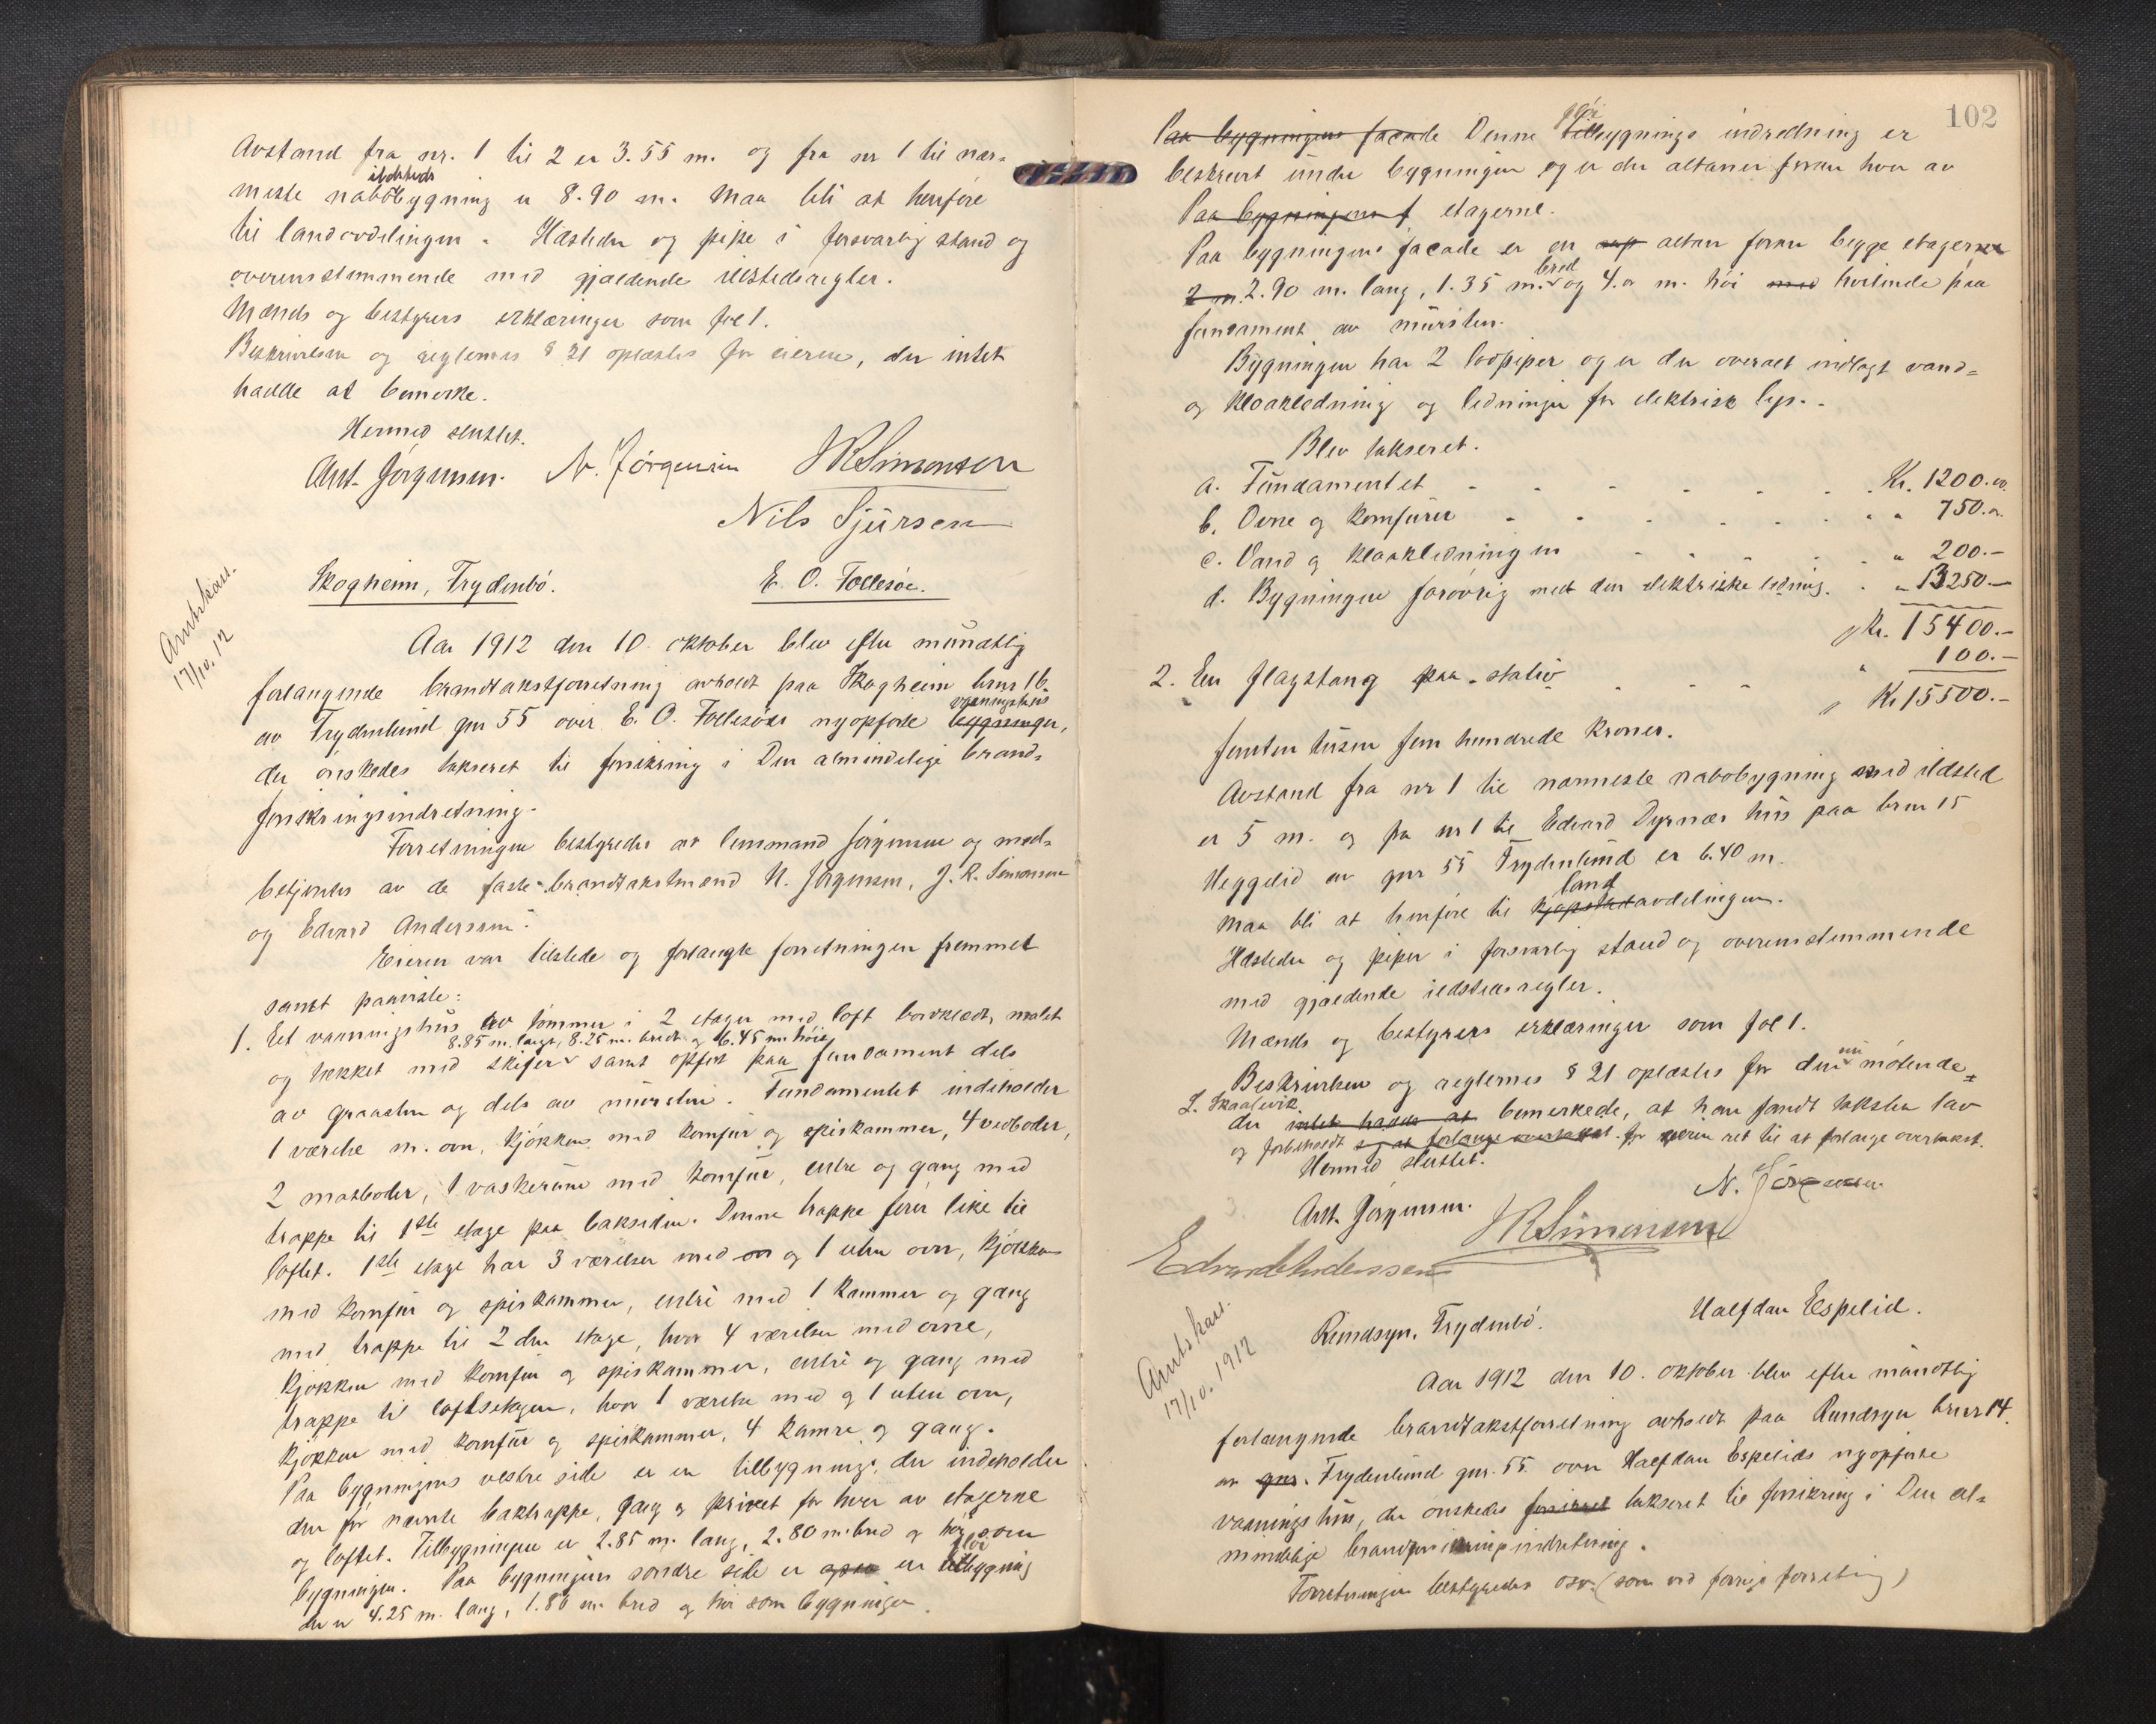 Avstand fra nr. 1 til 2 er 3.55 m. og fra nr 1 til nær-
ildsteds
meste nabobygning er 8.90 m. Maa bli at henføre
til landavdelingen. Ildsteder og pipe i forsvarlig stand og
overensstemmende med gjældende ildstedsregler.
Mænds og bestyrers erklæringer som fol 1.
Beskrivelsen og reglernes § 21 oplæstes for eieren, der intet
hadde at bemerke.
Hermed sluttet.
Ant. Jørgensen. N. Jørgensen J R Simonsen
Nils Sjursen
Amtskass.
17/10. 12
Skogheim, Frydenbø. E. O. Follesøe.
Aar 1912 den 10. oktober blev efter mundtlig
forlangende brandtakstforretning avholdt paa Skogheim brnr 16.
vaaningshus
av Frydenlund gnr 55 over E. O. Follesøes nyopførte bygninger,
der ønskedes takseret til forsikring i Den almindelige brand-
forsikringsindretning.
Forretningen bestyredes av lensmand Jørgensen og med-
betjentes av de faste brandtakstmænd N. Jørgensen, J. R. Simonsen
og Edvard Anderssen.
Eieren var tilstede og forlangte forretningen fremmet
samt paaviste:
1. Et vaaningshus av tømmer i 2 etager med loft bordklædt, malet
8.85 m. langt, 8.25 m. bredt og 6.45 m. høit
og tækket med skifer samt opført paa fundament dels
av graasten og dels av mursten. Fundamentet indeholder
1 værelse m. ovn, kjøkken med komfur og spiskammer, 4 vedboder,
2 matboder, 1 vaskerum med komfur, entre og gang med
trappe til 1ste etage paa baksiden. Denne trappe fører like til
loftet. 1ste etage har 3 værelser med ovn og 1 uten ovn, kjøkken
med komfur og spiskammer, entre med 1 kammer og gang
med trappe til 2den etage, hvor 4 værelser med ovne,
kjøkken med komfur og spiskammer, entre og gang med
trappe til loftsetagen, hvor 1 værelse med og 1 uten ovn,
kjøkken med komfur og spiskammer, 4 kamre og gang.
Paa bygningens vestre side er en tilbygning, der indeholder
den før nævnte baktrappe, gang og privet for hver av etagerne
og loftet. Tilbygningen er 2.85 m. lang, 2.80 m. bred og høi som
bygningen. Paa bygningens søndre side er en tilbygning
der er 4.25 m. lang, 1.80 m. bred og høi som bygningen.
102
Paa bygningens facade Denne tilbygnings indredning er
beskrevet under bygningen og er der altaner foran hver av
Paa bygningens f etagerne.
Paa bygningens facade er en altan foran begge etagerne
bred
2 m. 2.90 m. lang, 1.35 m. og 4.0 m. høi med hvilende paa
fundament av mursten.
Bygningen har 2 lodpiper og er der overalt indlagt vand-
og kloakledning og ledninger for elektrisk lys.
Blev takseret.
a. Fundamentet Kr. 1200.00
b. Ovne og komfurer " 750.00
c. Vand og kloakledningen " 200.-
d. Bygningen forøvrig med den elektriske ledning. " 13250.-
Kr. 15400.-
2. En flagstang paa stativ " 100.-
Kr 15500.-
femten tusen fem hundrede kroner.
Avstand fra nr 1 til nærmeste nabobygning med ildsted
er 5 m. og fra nr 1 til Edvard Dyrnæs hus paa brnr 15
Heggelid av gnr 55 Frydenlund er 6.40 m.
land
Maa bli at henføre til kjøpstadavdelingen.
Ildsteder og piper i forsvarlig stand og overensstemmende
med gjældende ildstedsregler.
Mænds og bestyrers erklæringer som fol 1.
nu
Beskrivelsen og reglernes § 21 oplæstes for den møtende
L. Skaalevik.
der intet hadde at bemerkede, at han fandt taksten lav
og forbeholdt sig at forlange overtakst. for eieren ret til at forlange overtakst.
Hermed sluttet.
Ant. Jørgensen. N. Jørgensen
J R Simonsen
Edvard Anderssen
Amtskass.
17/10. 1912
Rundsyn, Frydenbø. Halfdan Espelid.
Aar 1912 den 10. oktober blev efter mundtlig
forlangende brandtakstforretning avholdt paa Rundsyn brnr 14.
av gnr. Frydenlund gnr. 55 over Halfdan Espelids nyopførte
vaaningshus, der ønskedes forsikret takseret til forsikring i Den al-
mindelige brandforsikringsindretning.
Forretningen bestyredes osv. (som ved forrige forretning)